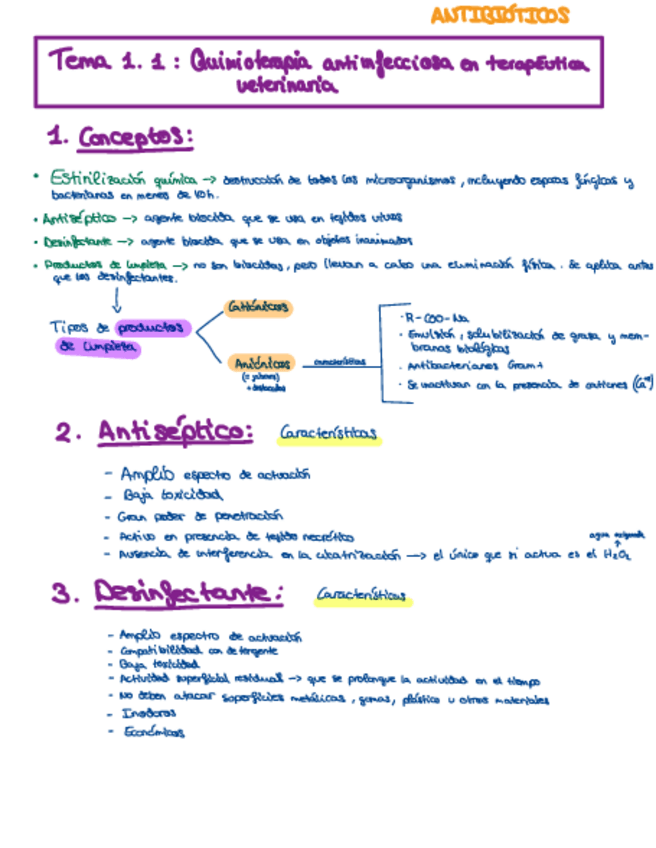 ANTIBIÓTICOS
Tema 1.1: Quimioterapia antinfecciosa en terapéutica
veterinaria
1. Conceptos:
• Estirilización química -> destrucción de todos los microorganismos, incluyendo esporas fúngicas y
bacterianas en menos de 10h.
• Antiséptico -> agente biocida que se usa en tejidos vivos
• Desinfectante -> agente biocida que se usa en objetos inanimados
• Productos de limpieza -> no son biocidas, pero llevan a cabo una eliminación física. Se aplica antes
que los desinfectantes.
Tipos de productos
de limpieza
Catiónicos
Aniónicos
(= jabones)
+ destacados
características
· R-COO-Na
· Emulsión, solubilización de grasa y mem-
branas biológicas
· Antibacterianos Gram+
· Se inactivan con la presencia de cationes (Ca⁺²)
2. Antiséptico: Características
- Amplio espectro de actuación
- Baja toxicidad
- Gran poder de penetración
- Activo en presencia de tejido necrótico
agua oxigenada
- Ausencia de interferencia en la cicatrización -> el único que si actua es el H₂O₂
3. Desinfectante: Características
- Amplio espectro de actuación
- Compatibilidad con detergente
- Baja toxicidad
- Actividad superficial residual -> que se prolongue la actividad en el tiempo
- No deben atacar superficies metálicas, gomas, plástico u otros materiales
- Inodoros
- Económicos